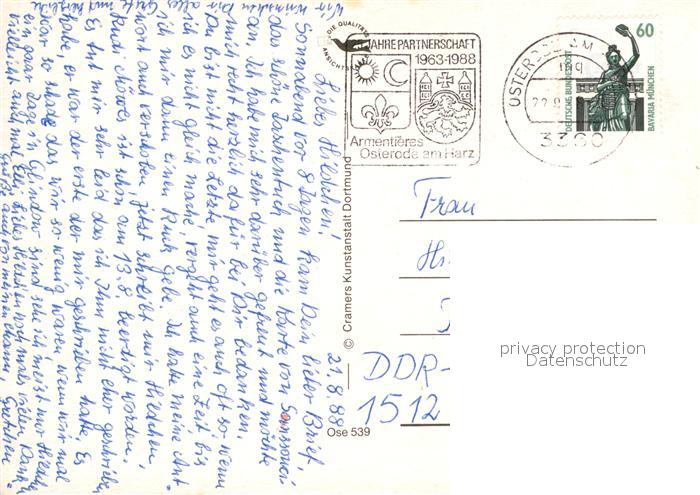 DIE QUALITÄTS
ANSICHTSKARTE
JAHRE PARTNERSCHAFT
1963-1988
Armentières
Osterode am Harz
OSTERODE AM
3360
60
DEUTSCHE BUNDESPOST
BAVARIA MÜNCHEN
21.8.88
Liebes Hildchen!
Sonnabend vor 8 Tagen kam Dein lieber Brief,
das schöne Taschentuch und die Karte von Sanssouci
an. Ich habe mich sehr darüber gefreut und möchte
mich recht herzlich dafür bei Dir bedanken.
Du bist die Letzte mir geht es auch oft so, wenn
ich es nicht gleich mache, vergeht auch eine Zeit, bis
ich mir dann einen Ruck gebe. Ich habe meine Ant-
wort auch verschoben, jetzt schreibt mir Hiedchen,
Rudi ist schon am 13.8. beerdigt worden.
Es tut mir sehr leid das ich Ihm nicht eher geschrieben
habe, er war der erste der mir geschrieben hatte. Es
war so schade das wir so wenig waren wenn wir mal
ein paar Tage in Glindow sind sehe ich meist nur Hiedch.
vielleicht auch mal Elli. Liebes Hildchen nochmals vielen Dank
Grüße auch von meinem Mann. Gretchen
Wir wünschen Dir alles Gute und herzliche
© Cramers Kunstanstalt Dortmund
Ose 539
Frau
Hi
DDR-
1512
privacy protection
Datenschutz